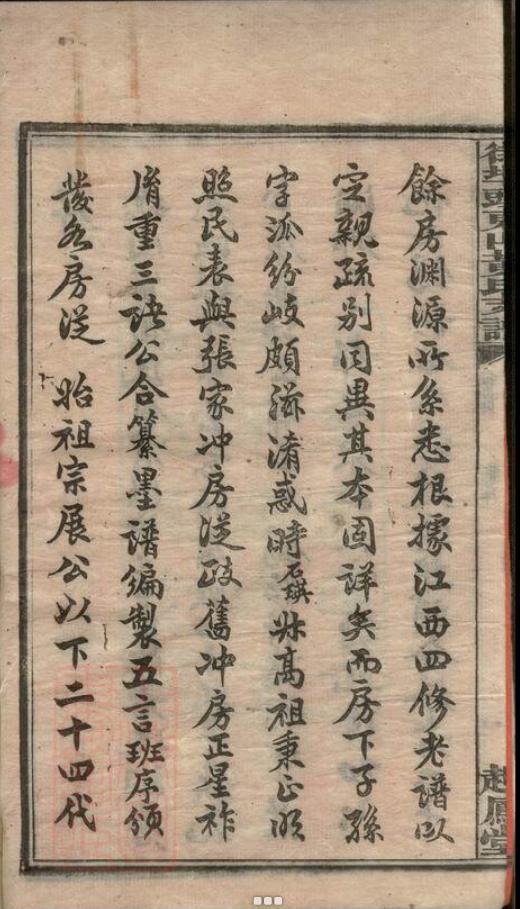 東山黃氏支譜
餘房淵源所系悉根據江西四修老譜以
定親疏別同異其本固詳矣而房下子孫
字派紛岐頗滋淆惑時石叔高祖秉正明
照民表與張家冲房從政舊冲房正星祚
重三諸公合纂墨譜編製五言班序頒
發各房從 祖宗展公以下二十四代
鳳堂